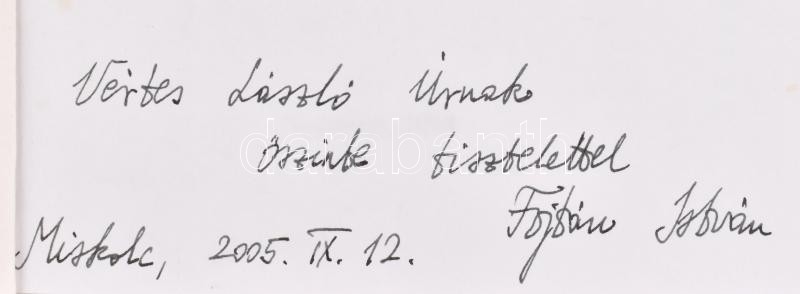 Vértes László Úrnak
őszinte tisztelettel
Fojtán István
Miskolc, 2005. IX. 12.
darabanth